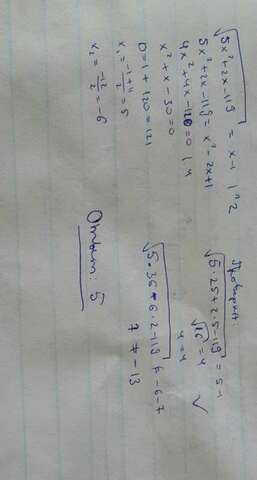 √5x²+2x-119 = x-1 | ^2
5x²+2x-119 = x²-2x+1
4x²+4x-120=0 | :4
x²+x-30=0
D=1+120=121
x₁ = (-1+11)/2 = 5
x₂ = -12/2 = -6
Ответ: 5
Проверка:
√5·25+2·5-119 = 5-1
√16 = 4
4=4 ✓
√5·36-6·2-119 ≠ -6-7
7 ≠ -13